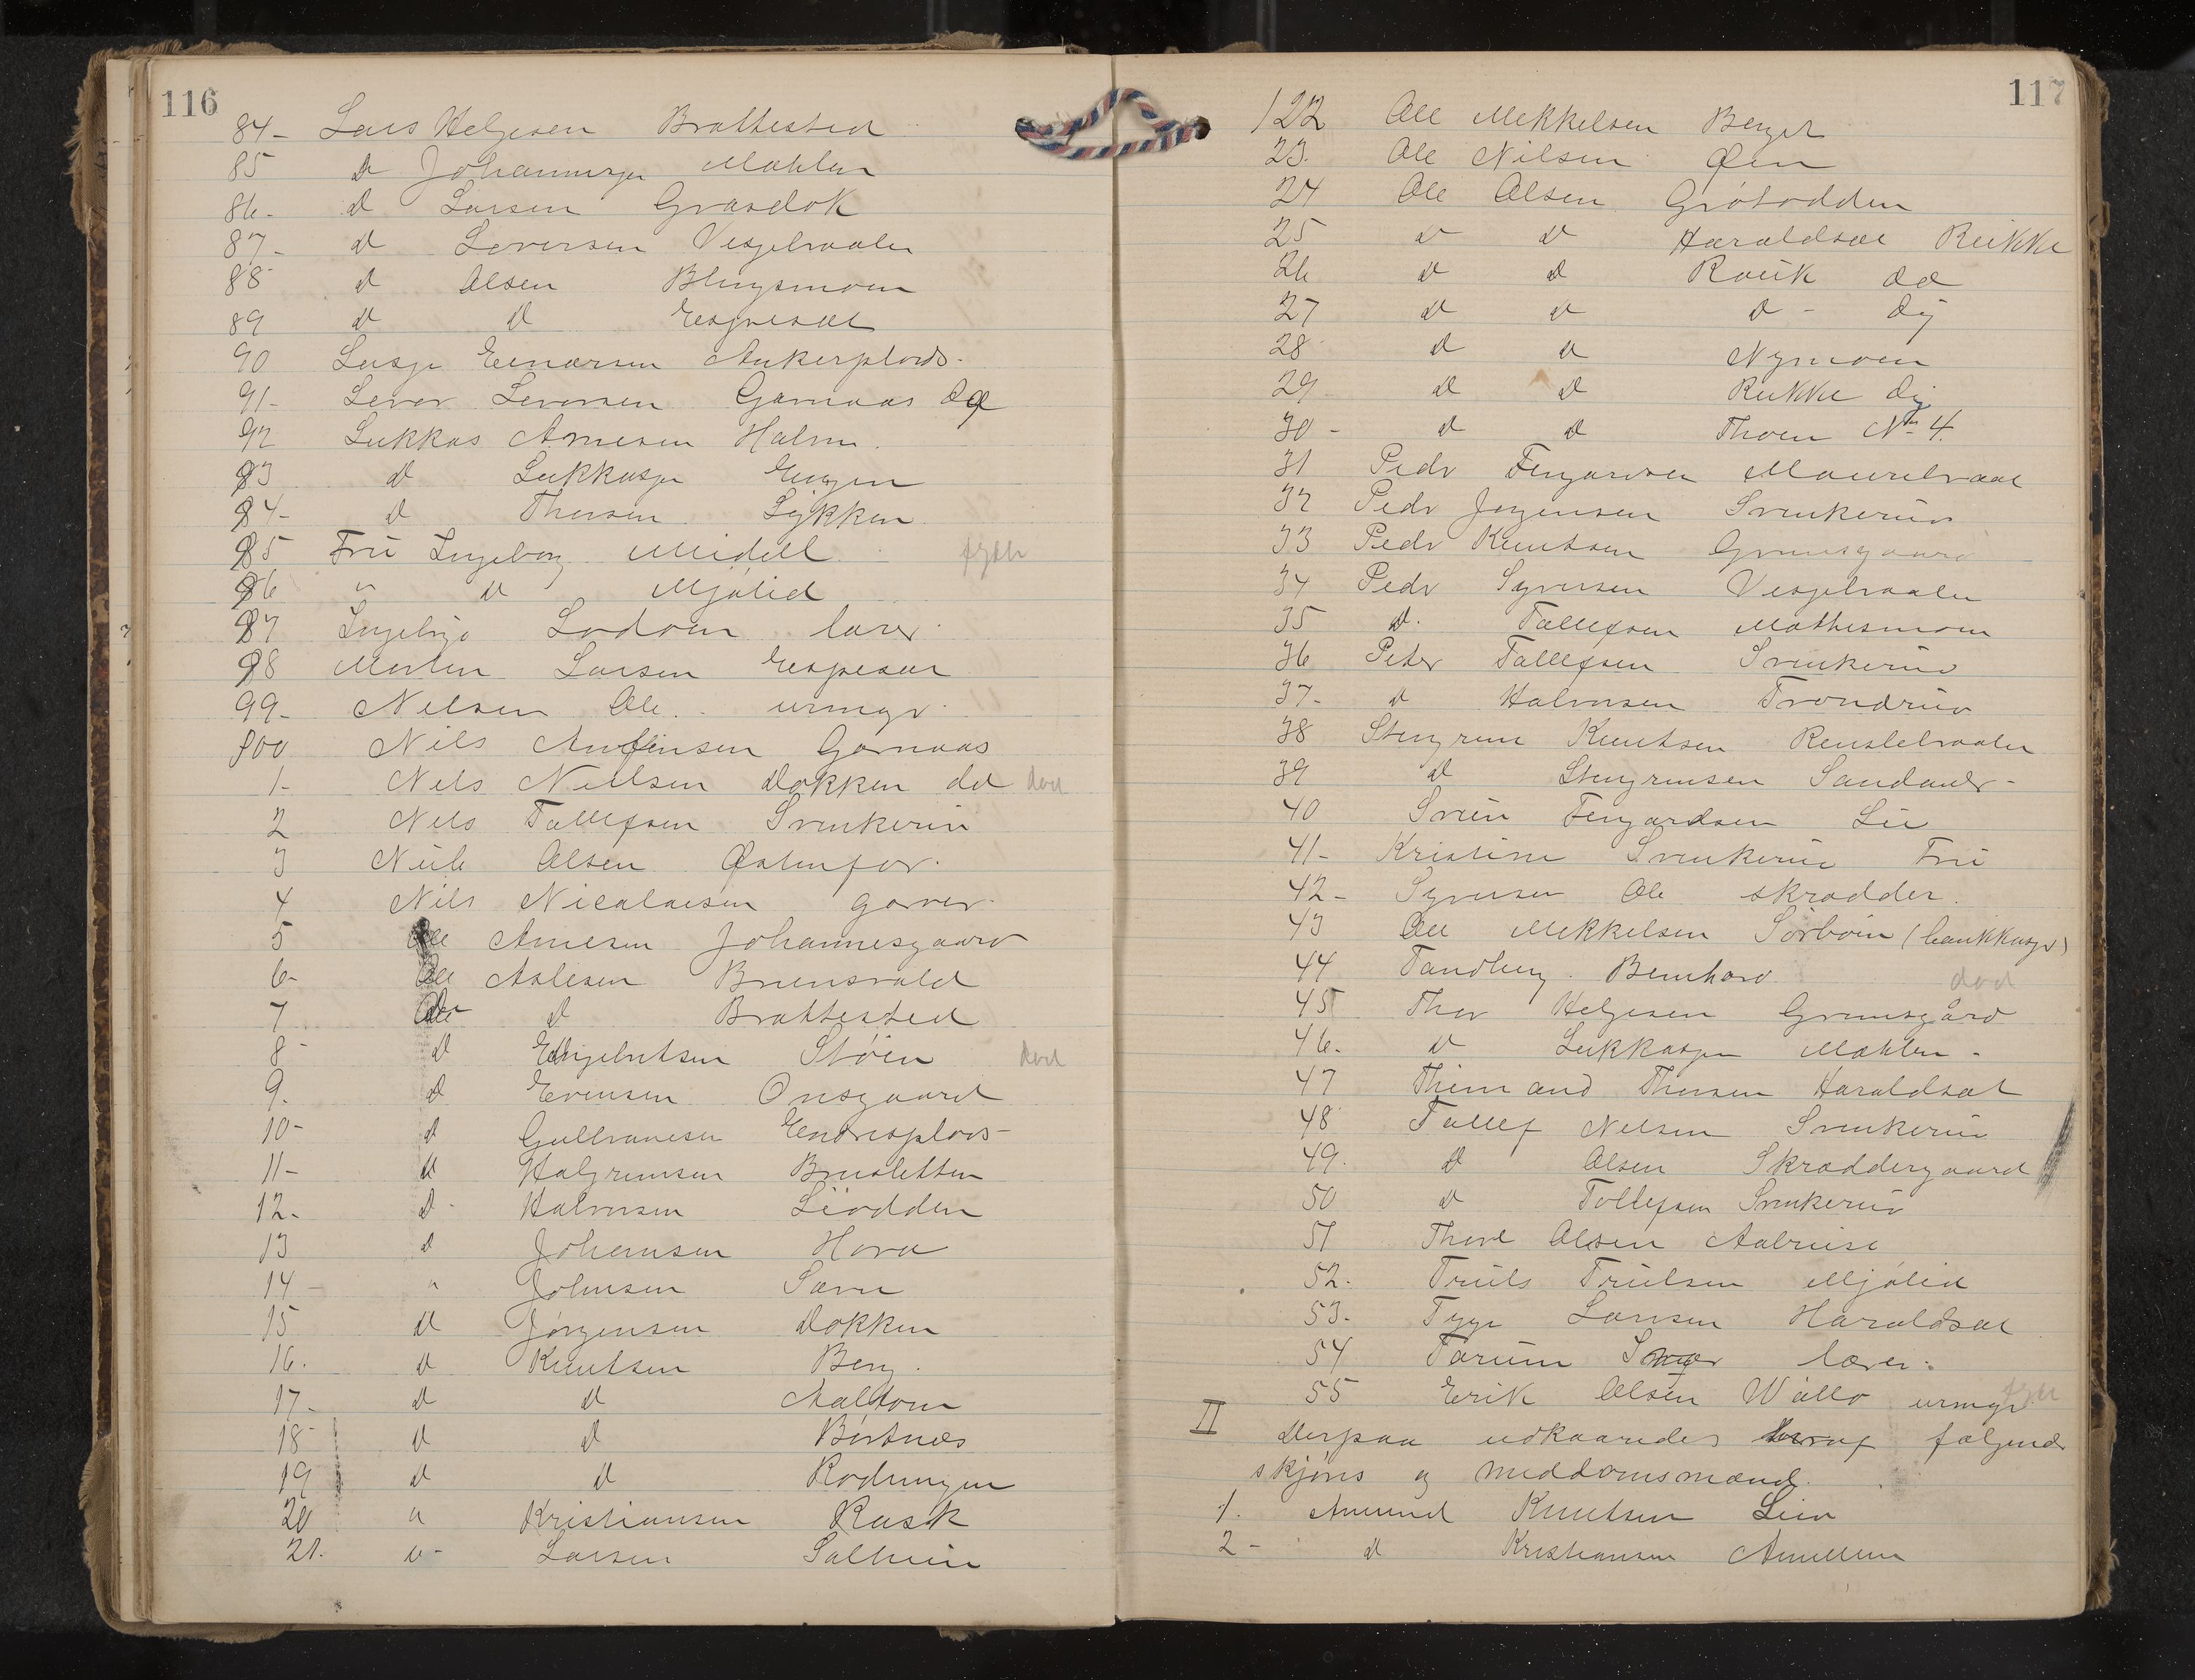 116
84- Lars Helgesen Brattested
85 D Johannesen Mæhlen
86- D Larsen Grasdok
87- D Leversen Vesgelvaalen
88- D Olsen Blingsmoen
89 D D Espesæt
90 Einarsen Ankerplads-
91- Lever Leversen Garnaas
92 Lukkas Arnesen Halvm.
93 D Lukkasen Engen
94- D Thorsen Løkken
95 Frü Ingeborg Midell
96 " D Mjølid
97 Ingebrigt Lodoen lærer
98 Morten Larsen Espesæt
99- Nelsen Ole urmgr
100 Nils Anfinsen Garnaas
1- Nels Nellsen Dokken dd død
2 Nels Tollefsen Svenkerüd
3 Niels Olsen Østenfor.
4 Nils Nicolaisen garver.
5 Ole Arnesen Johannesgaard
6- Ole Aslesen Bruusvold
7 Ole D Brattested
8- D Engebretsen Støen død
9. D Evensen Onsgaard
10- D Gulbransen Endresplads-
11- D Halgrimsen Brusletten
12. D- Halvorsen Liodden
13 D Johansen Hova
14- " Johnsen Sævre
15 D Jørgensen Dokken
16. D Knutsen Berg.
17- D D Aaltom
18- D D Børtnæs
19 D D Rodningen
20 " Kristiansen Rask
21. D- Larsen Solheim
117
122 Ole Mekkelsen Berget
23. Ole Nilsen Øen
24 Ole Olsen Grøtodden
25 D D Haraldsæt Rükke
26 D D Roük dd
27 D D D- dy
28 D D Nymoen
29 D D Rükke dy
30- D D Thoen No 4.
31 Pedr Fingarsen
32 Pedr Jørgensen Svenkerüd
33 Pedr Knutsen Grimsgaard
34 Pedr Syversen Vesgelvaalen
35 D. Tollefsen Mathismoen
36 Peter Tollefsen Svenkerüd
37- D Halvorsen Trondrüd
38 Stengrim Knutsen Renslelvaalen
39 D Stengrimsen Sandaker-
40 Svein Fingardsen Lie
41- Kristine Svenkerüd Frü
42- Syversen Ole skrædder.
43 Ole Mekkelsen Sørbøen (bankkasser)
44 Tandberg. Bernhard død
45 Thor Helgesen Grimsgård
46. D Lukkasen Mæhlen-
47 Thorsen Haraldsæt
48 Tollef Nelsen Svenkerüd
49. D Olsen Skræddergaard
50 D Tollefsen Svenkerüd
51 Thore Olsen Aabrüse
52. Trüls Trülsen Mjølid
53. Tyge Larsen Haraldsæt
54 lærer.
55 Erik Olsen Wållo urmgr
II Derpaa udkaaredes følgende
skjøns og meddomsmænd.
1. Amund Knutsen Lien
2- D Kristiansen